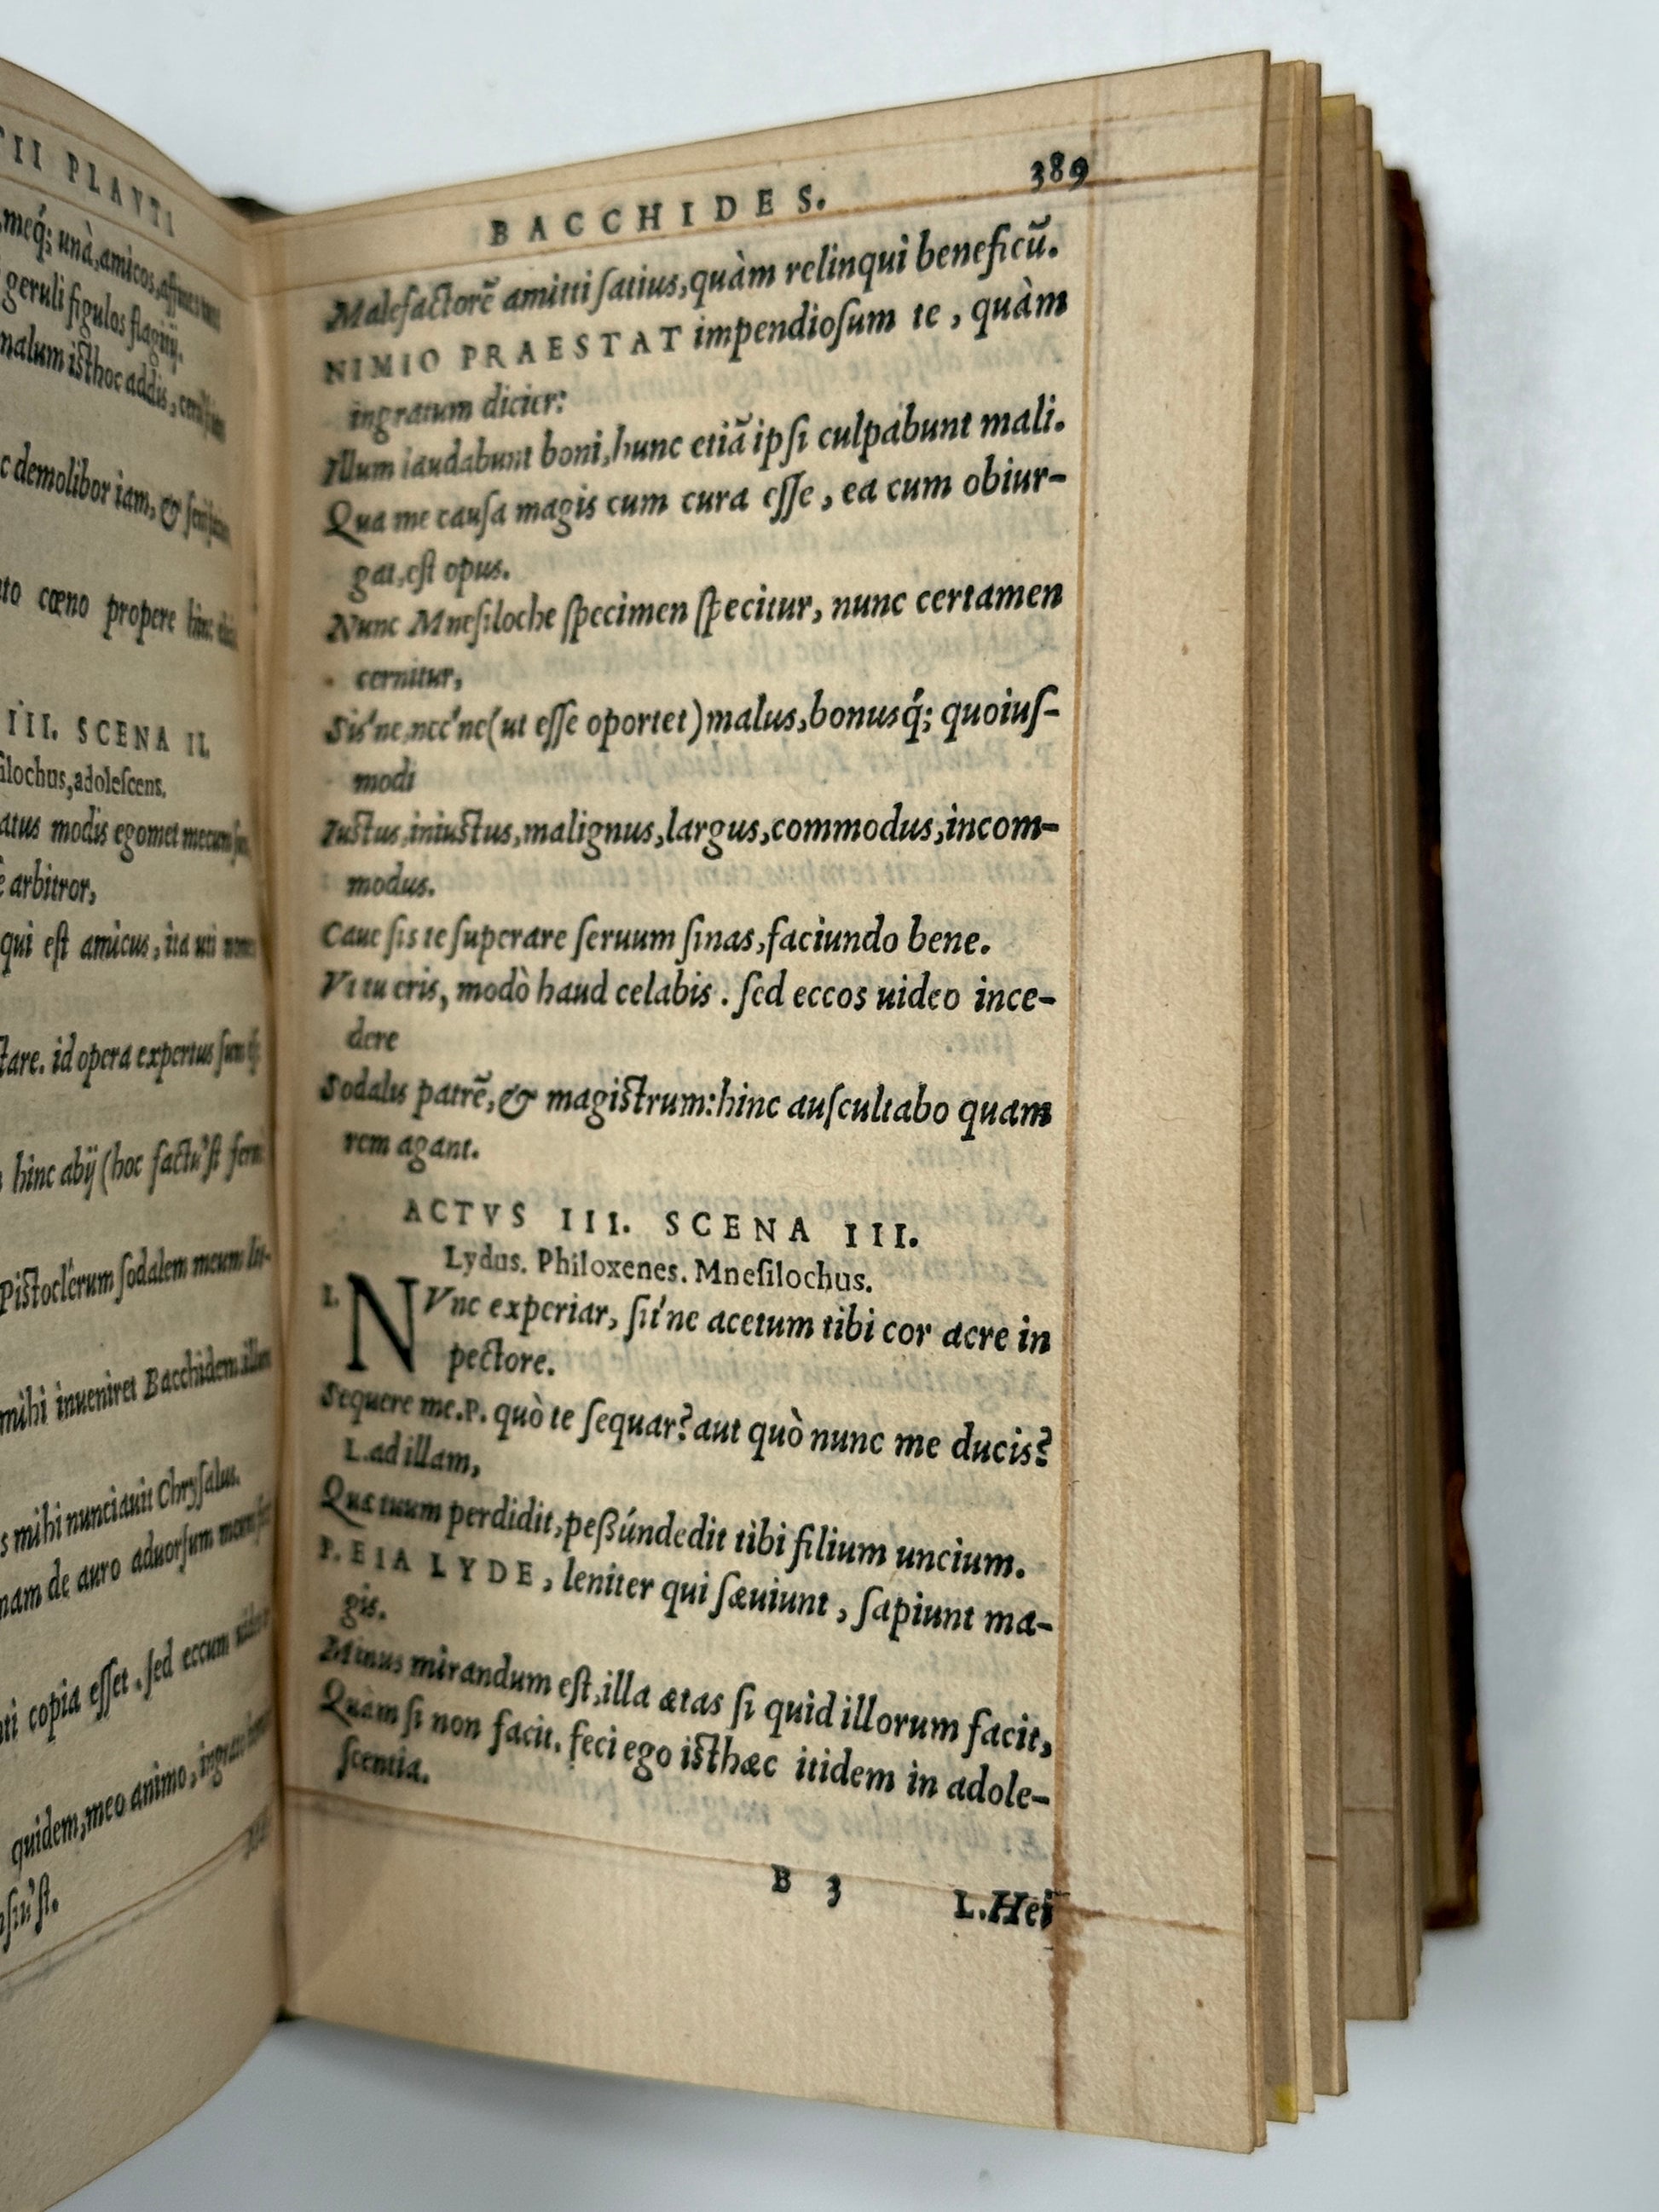 TII PLAVTI
meq́; unà, amicos, affines tuos
geruli figulos flagitij.
malum isthoc addis,
c demolibor iam, &
to cœno propere hinc
III. SCENA II.
silochus, adolescens.
atus modis egomet mecum
arbitror,
qui est amicus, ita uti nomen
tare. id opera expertus sum
hinc abij (hoc factu'st
Pistoclerum sodalem meum
mihi inueniret Bacchidem illam
s mihi nunciauit Chrysalus.
nam de auro aduorsum meum
ti copia esset. sed eccum
quidem, meo animo,
BACCHIDES. 389
Malefactorē amitti satius, quàm relinqui beneficū.
NIMIO PRAESTAT impendiosum te, quàm
ingratum dicier:
Illum laudabunt boni, hunc etiā ipsi culpabunt mali.
Qua me causa magis cum cura esse, ea cum obiur-
gat, est opus.
Nunc Mnesiloche specimen specitur, nunc certamen
cernitur,
Siś'ne, nec'ne (ut esse oportet) malus, bonusq́; quoius-
modi
Iustus, iniustus, malignus, largus, commodus, incom-
modus.
Caue sis te superare seruum sinas, faciundo bene.
Vt tu eris, modò haud celabis. sed eccos uideo ince-
dere
Sodalis patrē, & magistrum: hinc auscultabo quam
rem agant.
ACTVS III. SCENA III.
Lydus. Philoxenes. Mnesilochus.
L. NVnc experiar, sit'ne acetum tibi cor acre in
pectore.
Sequere me. P. quò te sequar? aut quò nunc me ducis?
L. ad illam,
Quæ tuum perdidit, peßúndedit tibi filium uncium.
P. EIA LYDE, leniter qui sæuiunt, sapiunt ma-
gis.
Minus mirandum est, illa ætas si quid illorum facit,
Quàm si non facit. feci ego isthæc itidem in adole-
scentia.
B 3 L. Hei